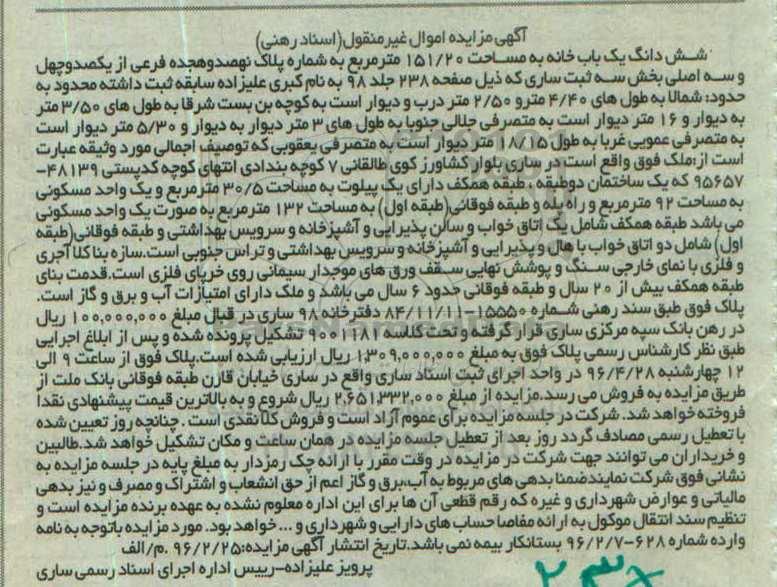 آگهی مزایده اموال غیرمنقول(اسناد رهنی)
شش دانگ یک باب خانه به مساحت ۱۵۱/۲۰ مترمربع به شماره پلاک نهصدوهجده فرعی از یکصدوچهل
و سه اصلی بخش سه ثبت ساری که ذیل صفحه ۲۳۸ جلد ۹۸ به نام کبری علیزاده سابقه ثبت داشته محدود به
حدود: شمالا به طول های ۴/۴۰ مترو ۲/۵۰ متر درب و دیوار است به کوچه بن بست شرقا به طول های ۳/۵۰ متر
به دیوار و ۱۶ متر دیوار است به متصرفی جلالی جنوبا به طول های ۳ متر دیوار به دیوار و ۵/۳۰ متر دیوار است
به متصرفی عمویی غربا به طول ۱۸/۱۵ متر دیوار است به متصرفی یعقوبی که توصیف اجمالی مورد وثیقه عبارت
است از:ملک فوق واقع است در ساری بلوار کشاورز کوی طالقانی ۷ کوچه بندادی انتهای کوچه کدپستی ۴۸۱۳۹-
۹۵۶۵۷ که یک ساختمان دوطبقه ، طبقه همکف دارای یک پیلوت به مساحت ۳۰/۵ مترمربع و یک واحد مسکونی
به مساحت ۹۲ مترمربع و راه پله و طبقه فوقانی(طبقه اول) به مساحت ۱۳۲ مترمربع به صورت یک واحد مسکونی
می باشد طبقه همکف شامل یک اتاق خواب و سالن پذیرایی و آشپزخانه و سرویس بهداشتی و طبقه فوقانی(طبقه
اول) شامل دو اتاق خواب با هال و پذیرایی و آشپزخانه و سرویس بهداشتی و تراس جنوبی است.سازه بنا کلا آجری
و فلزی با نمای خارجی سنگ و پوشش نهایی سقف ورق های موجدار سیمانی روی خرپای فلزی است.قدمت بنای
طبقه همکف بیش از ۲۰ سال و طبقه فوقانی حدود ۶ سال می باشد و ملک دارای امتیازات آب و برق و گاز است.
پلاک فوق طبق سند رهنی شماره ۱۵۵۵۰-۸۴/۱۱/۱۱ دفترخانه ۹۸ ساری در قبال مبلغ ۱۰۰,۰۰۰,۰۰۰ ریال
در رهن بانک سپه مرکزی ساری قرار گرفته و تحت کلاسه ۹۰۰۱۱۸۱ تشکیل پرونده شده و پس از ابلاغ اجرایی
طبق نظر کارشناس رسمی پلاک فوق به مبلغ ۱,۳۰۹,۰۰۰,۰۰۰ ریال ارزیابی شده است.پلاک فوق از ساعت ۹ الی
۱۲ چهارشنبه ۹۶/۴/۲۸ در واحد اجرای ثبت اسناد ساری واقع در ساری خیابان قارن طبقه فوقانی بانک ملت از
طریق مزایده به فروش می رسد.مزایده از مبلغ ۲,۶۵۱,۳۳۲,۰۰۰ ریال شروع و به بالاترین قیمت پیشنهادی نقدا
فروخته خواهد شد. شرکت در جلسه مزایده برای عموم آزاد است و فروش کلا نقدی است . چنانچه روز تعیین شده
با تعطیل رسمی مصادف گردد روز بعد از تعطیل جلسه مزایده در همان ساعت و مکان تشکیل خواهد شد.طالبین
و خریداران می توانند جهت شرکت در مزایده در وقت مقرر با ارائه چک رمزدار به مبلغ پایه در جلسه مزایده به
نشانی فوق شرکت نمایندضمنا بدهی های مربوط به آب،برق و گاز اعم از حق انشعاب و اشتراک و مصرف و نیز بدهی
مالیاتی و عوارض شهرداری و غیره که رقم قطعی آن ها برای این اداره معلوم نشده به عهده برنده مزایده است و
تنظیم سند انتقال موکول به ارائه مفاصا حساب های دارایی و شهرداری و ... خواهد بود. مورد مزایده باتوجه به نامه
وارده شماره ۶۲۸-۹۶/۲/۷ بستانکار بیمه نمی باشد.تاریخ انتشار آگهی مزایده:۹۶/۲/۲۵ .م/الف
پرویز علیزاده-رییس اداره اجرای اسناد رسمی ساری